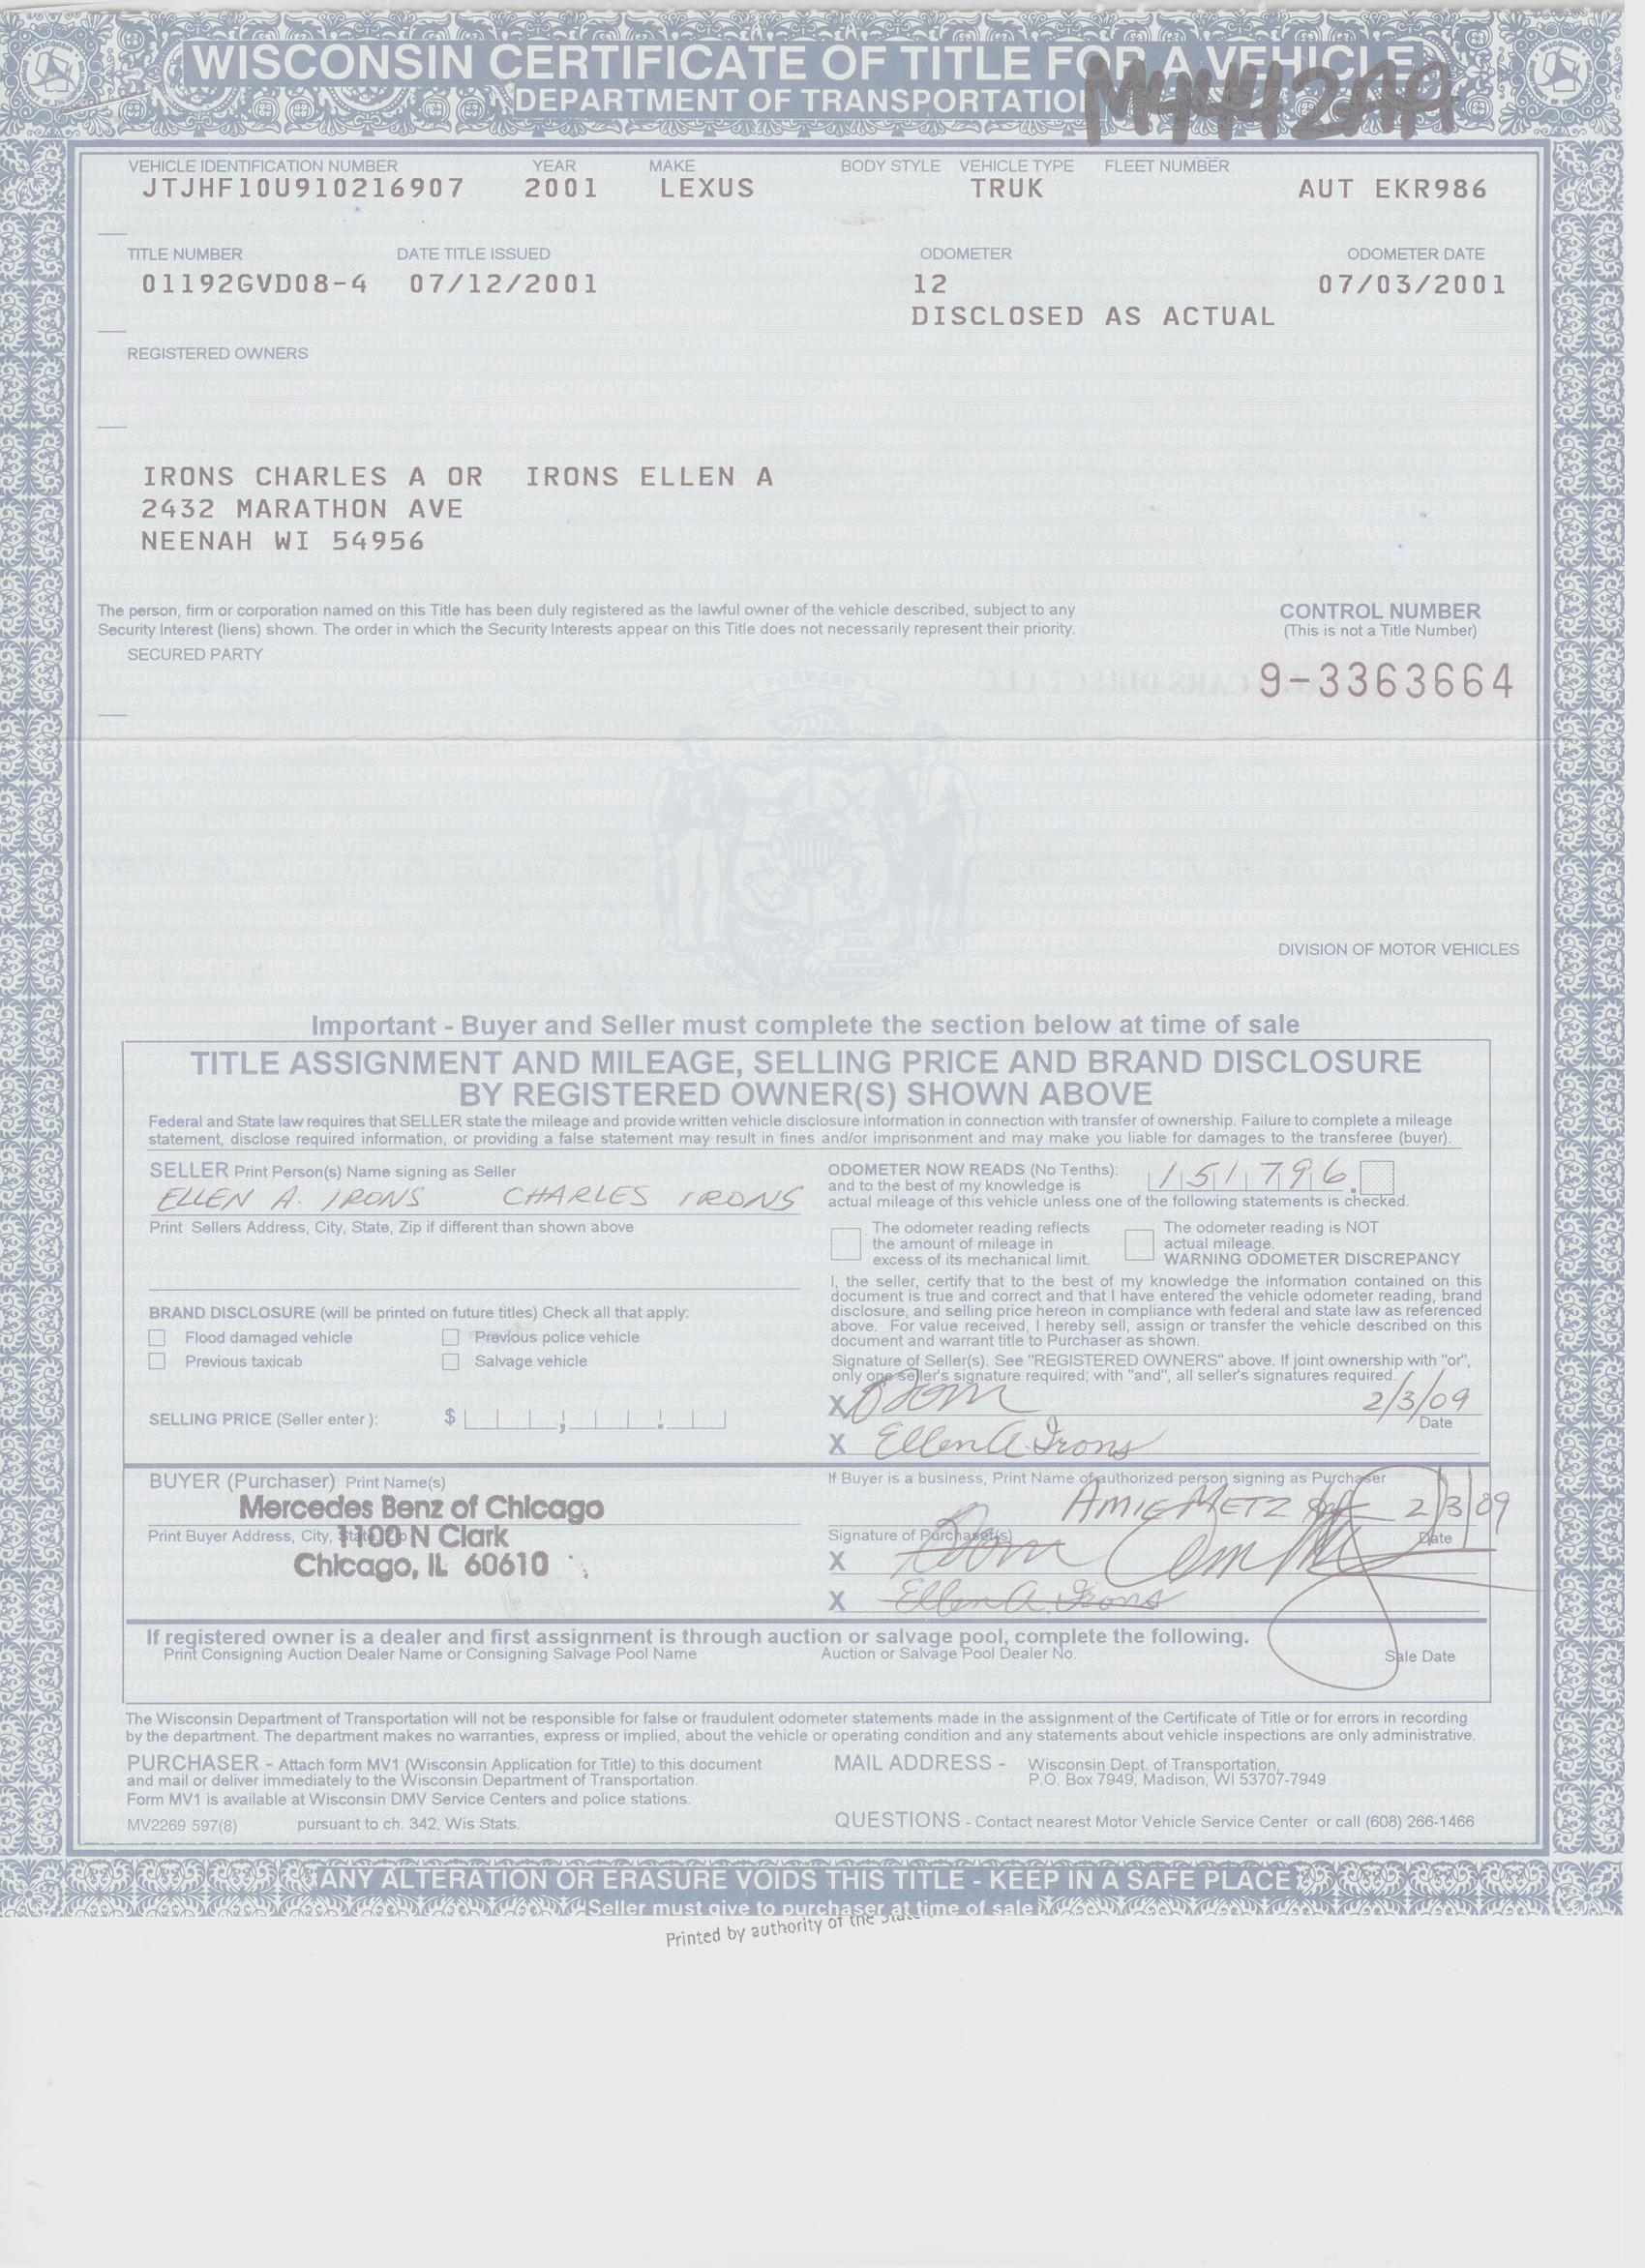 WISCONSIN CERTIFICATE OF TITLE FOR A VEHICLE
DEPARTMENT OF TRANSPORTATION
M4442AA
VEHICLE IDENTIFICATION NUMBER YEAR MAKE BODY STYLE VEHICLE TYPE FLEET NUMBER
JTJHF10U910216907 2001 LEXUS TRUK AUT EKR986
TITLE NUMBER DATE TITLE ISSUED ODOMETER ODOMETER DATE
01192GVD08-4 07/12/2001 12 07/03/2001
DISCLOSED AS ACTUAL
REGISTERED OWNERS
IRONS CHARLES A OR IRONS ELLEN A
2432 MARATHON AVE
NEENAH WI 54956
The person, firm or corporation named on this Title has been duly registered as the lawful owner of the vehicle described, subject to any
Security Interest (liens) shown. The order in which the Security Interests appear on this Title does not necessarily represent their priority.
CONTROL NUMBER
(This is not a Title Number)
SECURED PARTY
9-3363664
FORWARD
DIVISION OF MOTOR VEHICLES
Important - Buyer and Seller must complete the section below at time of sale
TITLE ASSIGNMENT AND MILEAGE, SELLING PRICE AND BRAND DISCLOSURE
BY REGISTERED OWNER(S) SHOWN ABOVE
Federal and State law requires that SELLER state the mileage and provide written vehicle disclosure information in connection with transfer of ownership. Failure to complete a mileage
statement, disclose required information, or providing a false statement may result in fines and/or imprisonment and may make you liable for damages to the transferee (buyer).
SELLER Print Person(s) Name signing as Seller
ELLEN A. IRONS CHARLES IRONS
Print Sellers Address, City, State, Zip if different than shown above
BRAND DISCLOSURE (will be printed on future titles) Check all that apply:
Flood damaged vehicle Previous police vehicle
Previous taxicab Salvage vehicle
SELLING PRICE (Seller enter ): $
ODOMETER NOW READS (No Tenths): 151796.
and to the best of my knowledge is
actual mileage of this vehicle unless one of the following statements is checked.
The odometer reading reflects
the amount of mileage in
excess of its mechanical limit.
The odometer reading is NOT
actual mileage.
WARNING ODOMETER DISCREPANCY
I, the seller, certify that to the best of my knowledge the information contained on this
document is true and correct and that I have entered the vehicle odometer reading, brand
disclosure, and selling price hereon in compliance with federal and state law as referenced
above. For value received, I hereby sell, assign or transfer the vehicle described on this
document and warrant title to Purchaser as shown.
Signature of Seller(s). See "REGISTERED OWNERS" above. If joint ownership with "or",
only one seller's signature required; with "and", all seller's signatures required.
X 2/3/09
Date
X Ellen A. Irons
BUYER (Purchaser) Print Name(s)
Mercedes Benz of Chicago
Print Buyer Address, City, State, Zip
1100 N Clark
Chicago, IL 60610
If Buyer is a business, Print Name of authorized person signing as Purchaser
AMIE METZ 2/3/09
Signature of Purchaser(s) Date
X
X Ellen A. Irons
If registered owner is a dealer and first assignment is through auction or salvage pool, complete the following.
Print Consigning Auction Dealer Name or Consigning Salvage Pool Name Auction or Salvage Pool Dealer No. Sale Date
The Wisconsin Department of Transportation will not be responsible for false or fraudulent odometer statements made in the assignment of the Certificate of Title or for errors in recording
by the department. The department makes no warranties, express or implied, about the vehicle or operating condition and any statements about vehicle inspections are only administrative.
PURCHASER - Attach form MV1 (Wisconsin Application for Title) to this document
and mail or deliver immediately to the Wisconsin Department of Transportation.
Form MV1 is available at Wisconsin DMV Service Centers and police stations.
MV2269 597(8) pursuant to ch. 342, Wis Stats.
MAIL ADDRESS - Wisconsin Dept. of Transportation,
P.O. Box 7949, Madison, WI 53707-7949
QUESTIONS - Contact nearest Motor Vehicle Service Center or call (608) 266-1466
ANY ALTERATION OR ERASURE VOIDS THIS TITLE - KEEP IN A SAFE PLACE
Seller must give to purchaser at time of sale
Printed by authority of the State